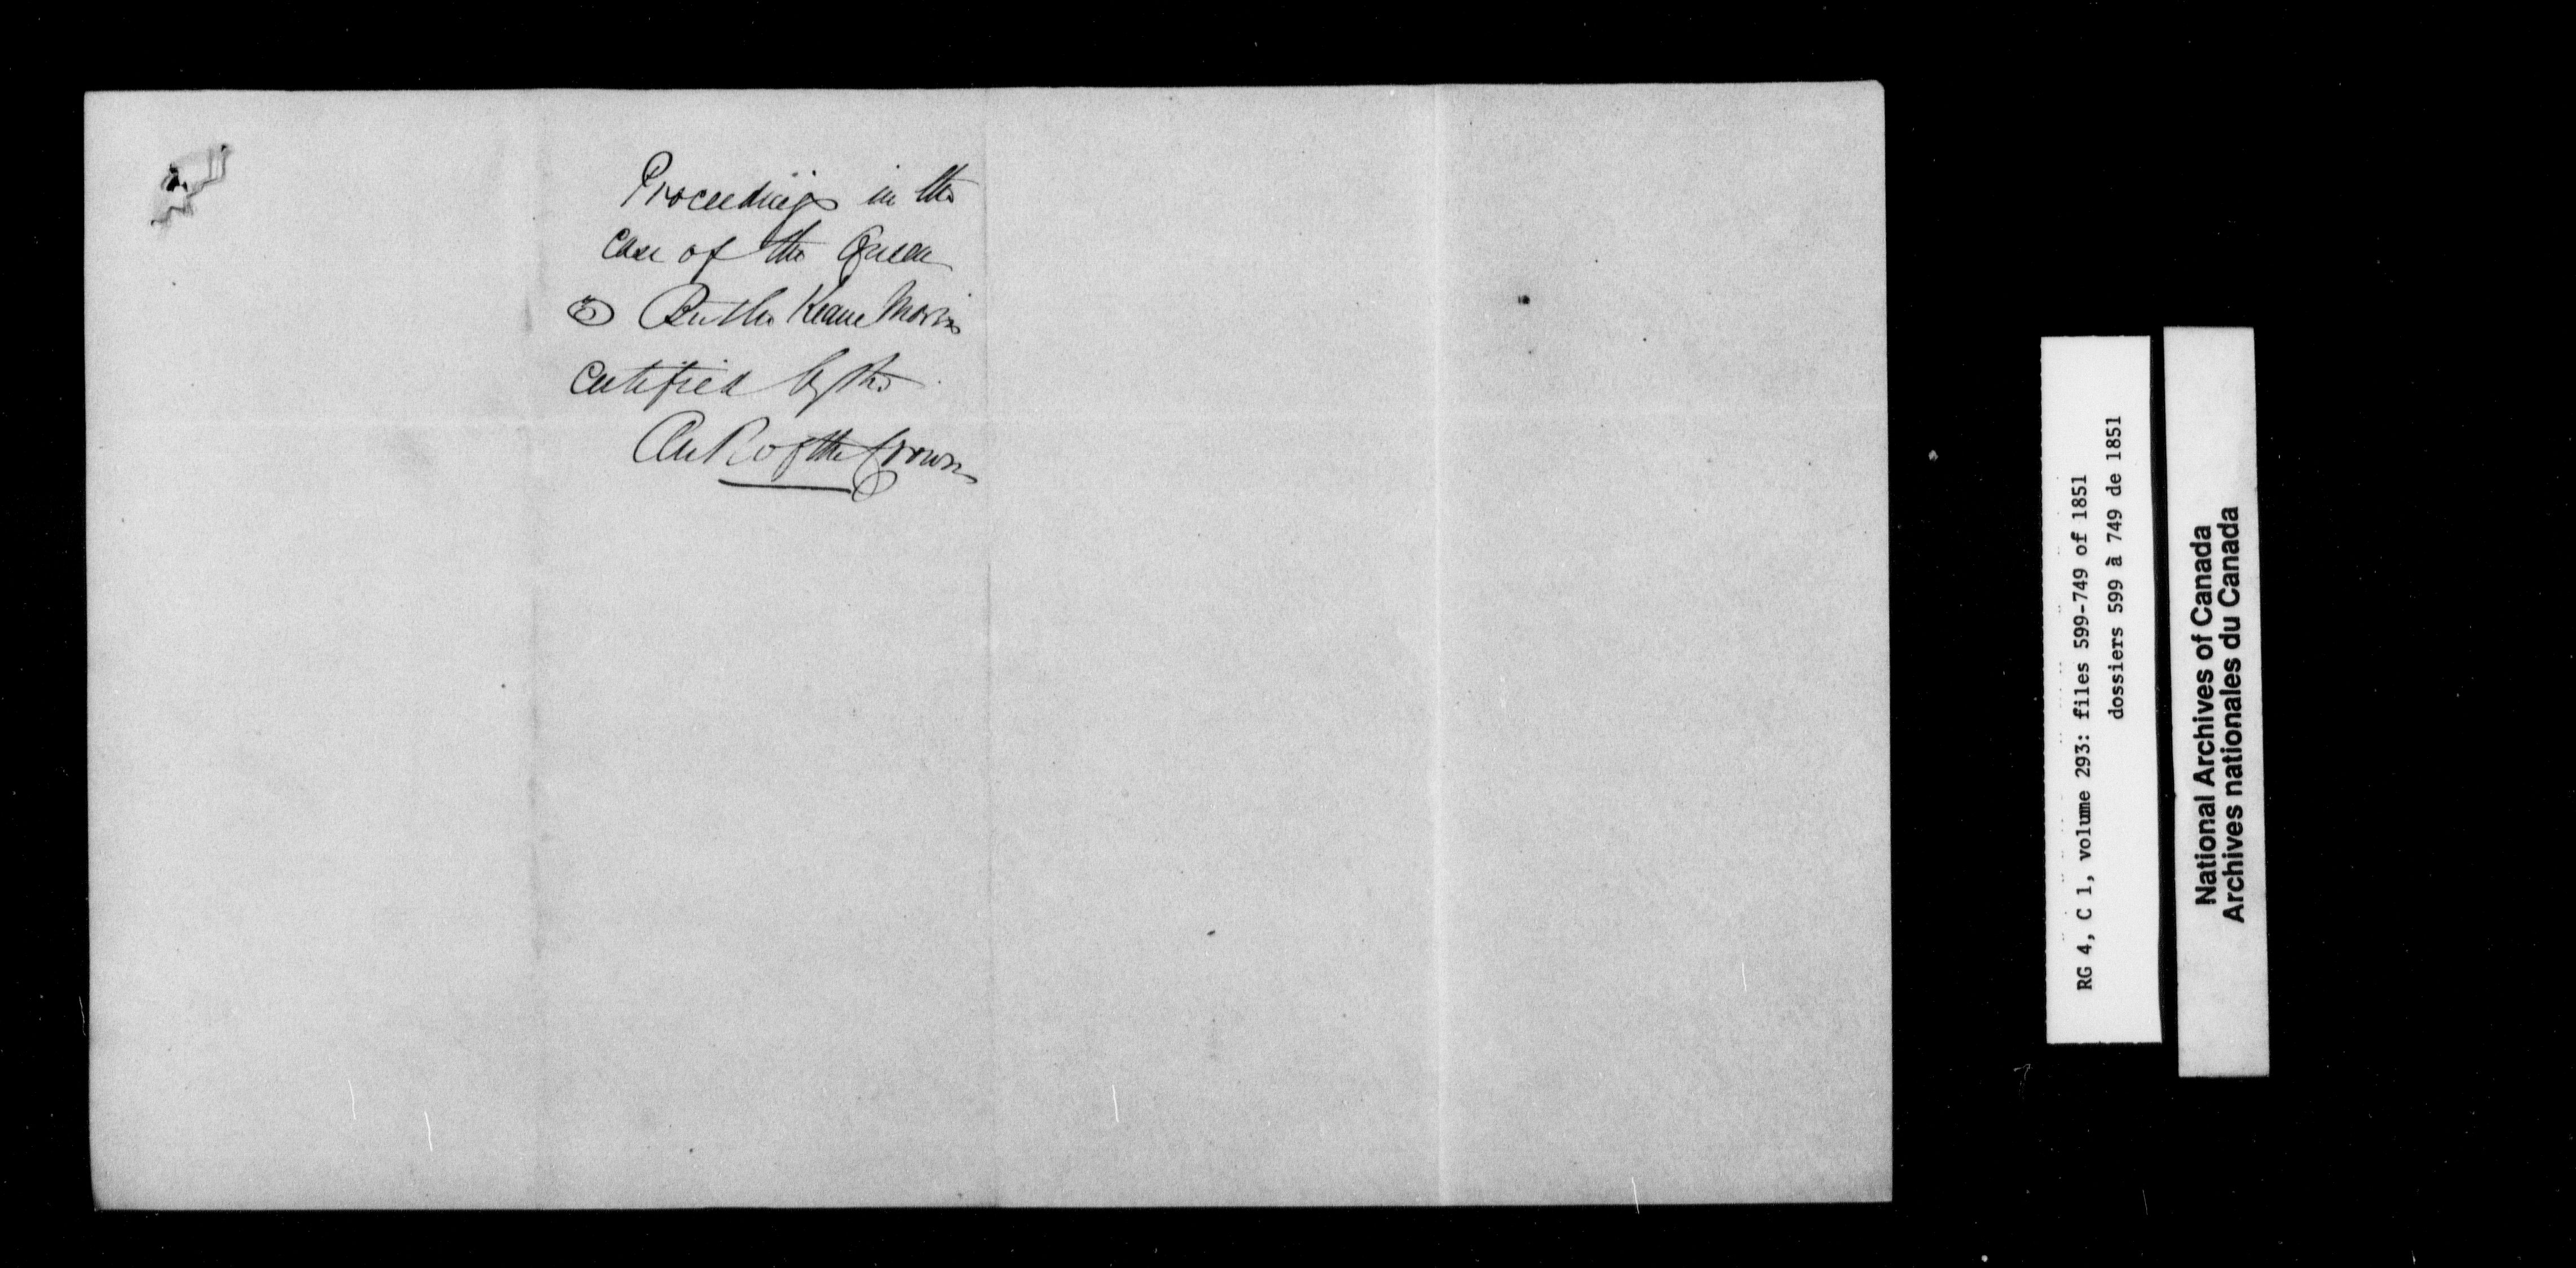 Proceedings in the
case of the Queen
vs Butler Keane Morris
certified by the
Clk of the Crown
RG 4, C 1, volume 293: files 599-749 of 1851
dossiers 599 à 749 de 1851
National Archives of Canada
Archives nationales du Canada